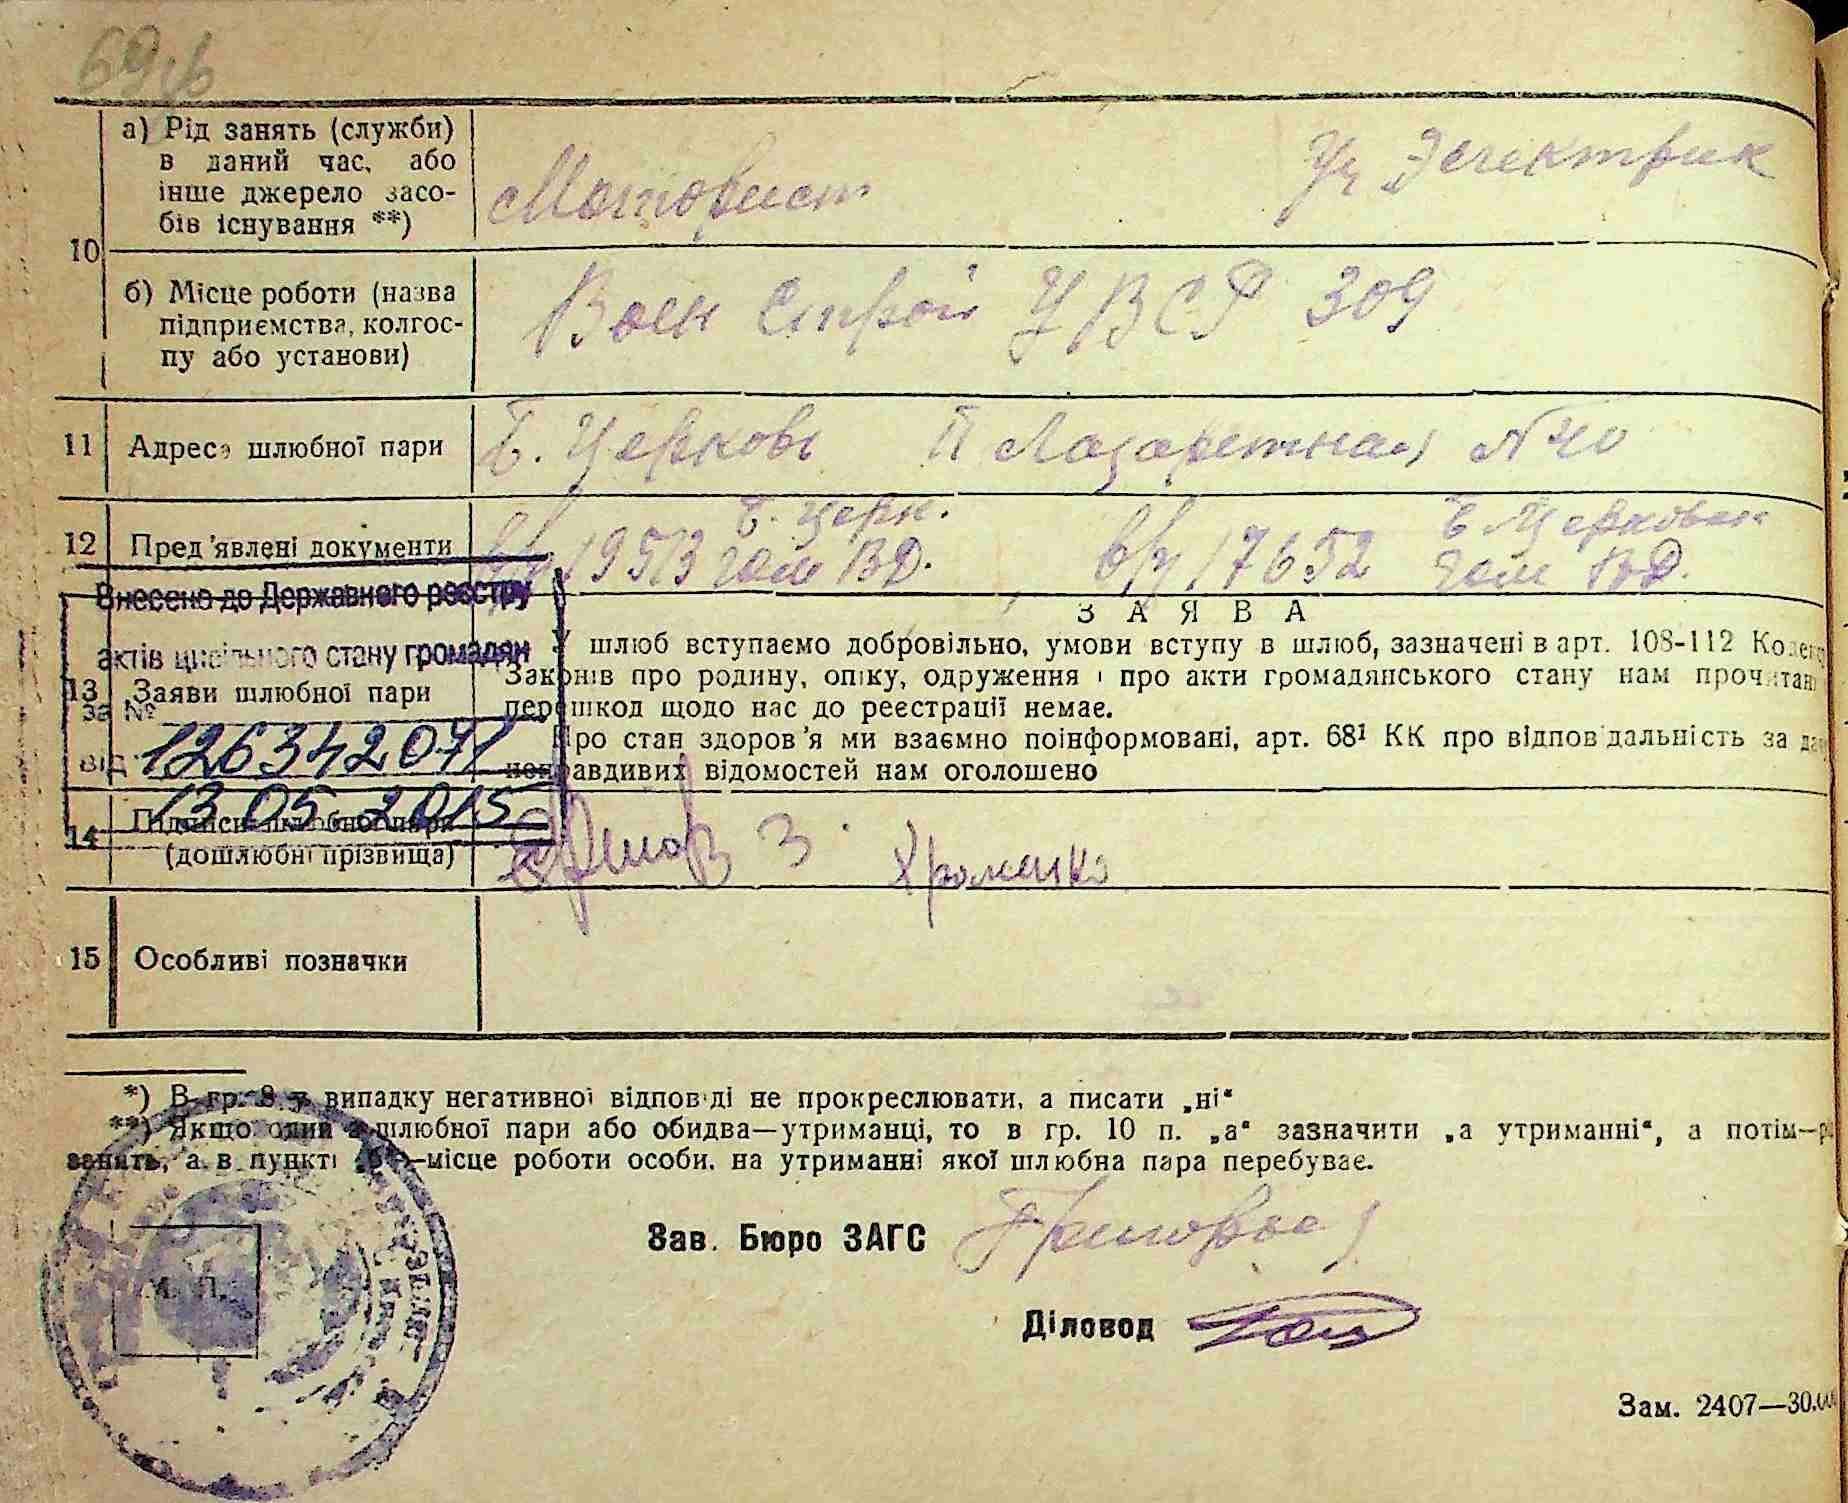 а) Рід занять (служби)
в даний час, або
інше джерело засо-
бів існування **)
Моторист
Уч Электрик
10
б) Місце роботи (назва
підприємства, колгос-
пу або установи)
Воен Строй УВСР 309
11 Адреса шлюбної пари
Б. Церковь П Лазаретная №40
12 Пред'явлені документи
Б. Церк.
19513 ВД.
Б Церковск
17652 ВД.
Внесено до Державного реєстру
актів цивільного стану громадян
за №
126342071
від
13 05 2015
З А Я В А
13 Заяви шлюбної пари
У шлюб вступаємо добровільно, умови вступу в шлюб, зазначені в арт. 108-112
Законів про родину, опіку, одруження і про акти громадянського стану нам
перешкод щодо нас до реєстрації немає.
Про стан здоров'я ми взаємно поінформовані, арт. 68¹ КК про відповідальність за
неправдивих відомостей нам оголошено
14 Підписи шлюбної пари
(дошлюбні прізвища)
Хроменко
15 Особливі позначки
*) В гр. 8 у випадку негативної відповіді не прокреслювати, а писати „ні“
**) Якщо один з шлюбної пари або обидва—утриманці, то в гр. 10 п. „а“ зазначити „а утриманні“, а потім—
занять, а в пункті —місце роботи особи, на утриманні якої шлюбна пара перебуває.
М. П.
Зав. Бюро ЗАГС
Діловод
Зам. 2407—30.